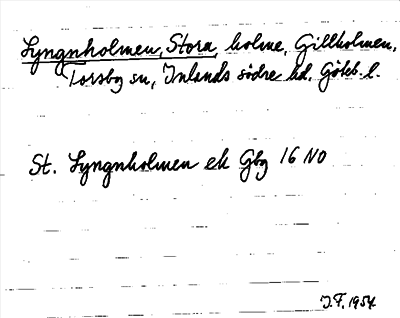 Lyngnholmen, Stora, holme, Gillholmen,
Torsby sn, Inlands södre hd, Göteb. l.
St. Lyngnholmen ek Gbg 16 NO
J.F. 1954